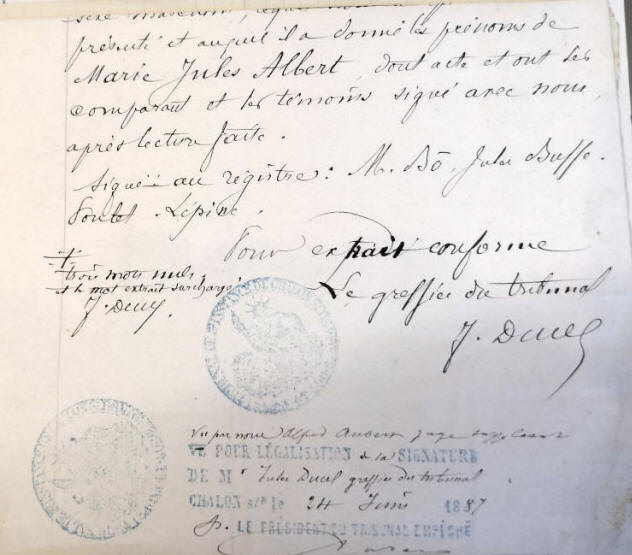 sexe masculin,
présenté et auquel il a donné les prénoms de
Marie Jules Albert, dont acte et ont les
comparant et les témoins signé avec nous,
après lecture faite.
Signé au registre : M. Bô, Jules Buffe.
Lépine.
Pour extrait conforme
Le greffier du tribunal
J. Ducel
trois mots nuls
et le mot extrait surchargé
J. Ducel
Vu par nous Alfred juge suppléant
VU POUR LÉGALISATION de la SIGNATURE
DE Mr Jules Ducel greffier du tribunal
CHALON s/s le 24 Juin 1887
P. LE PRÉSIDENT DU TRIBUNAL EMPÊCHÉ